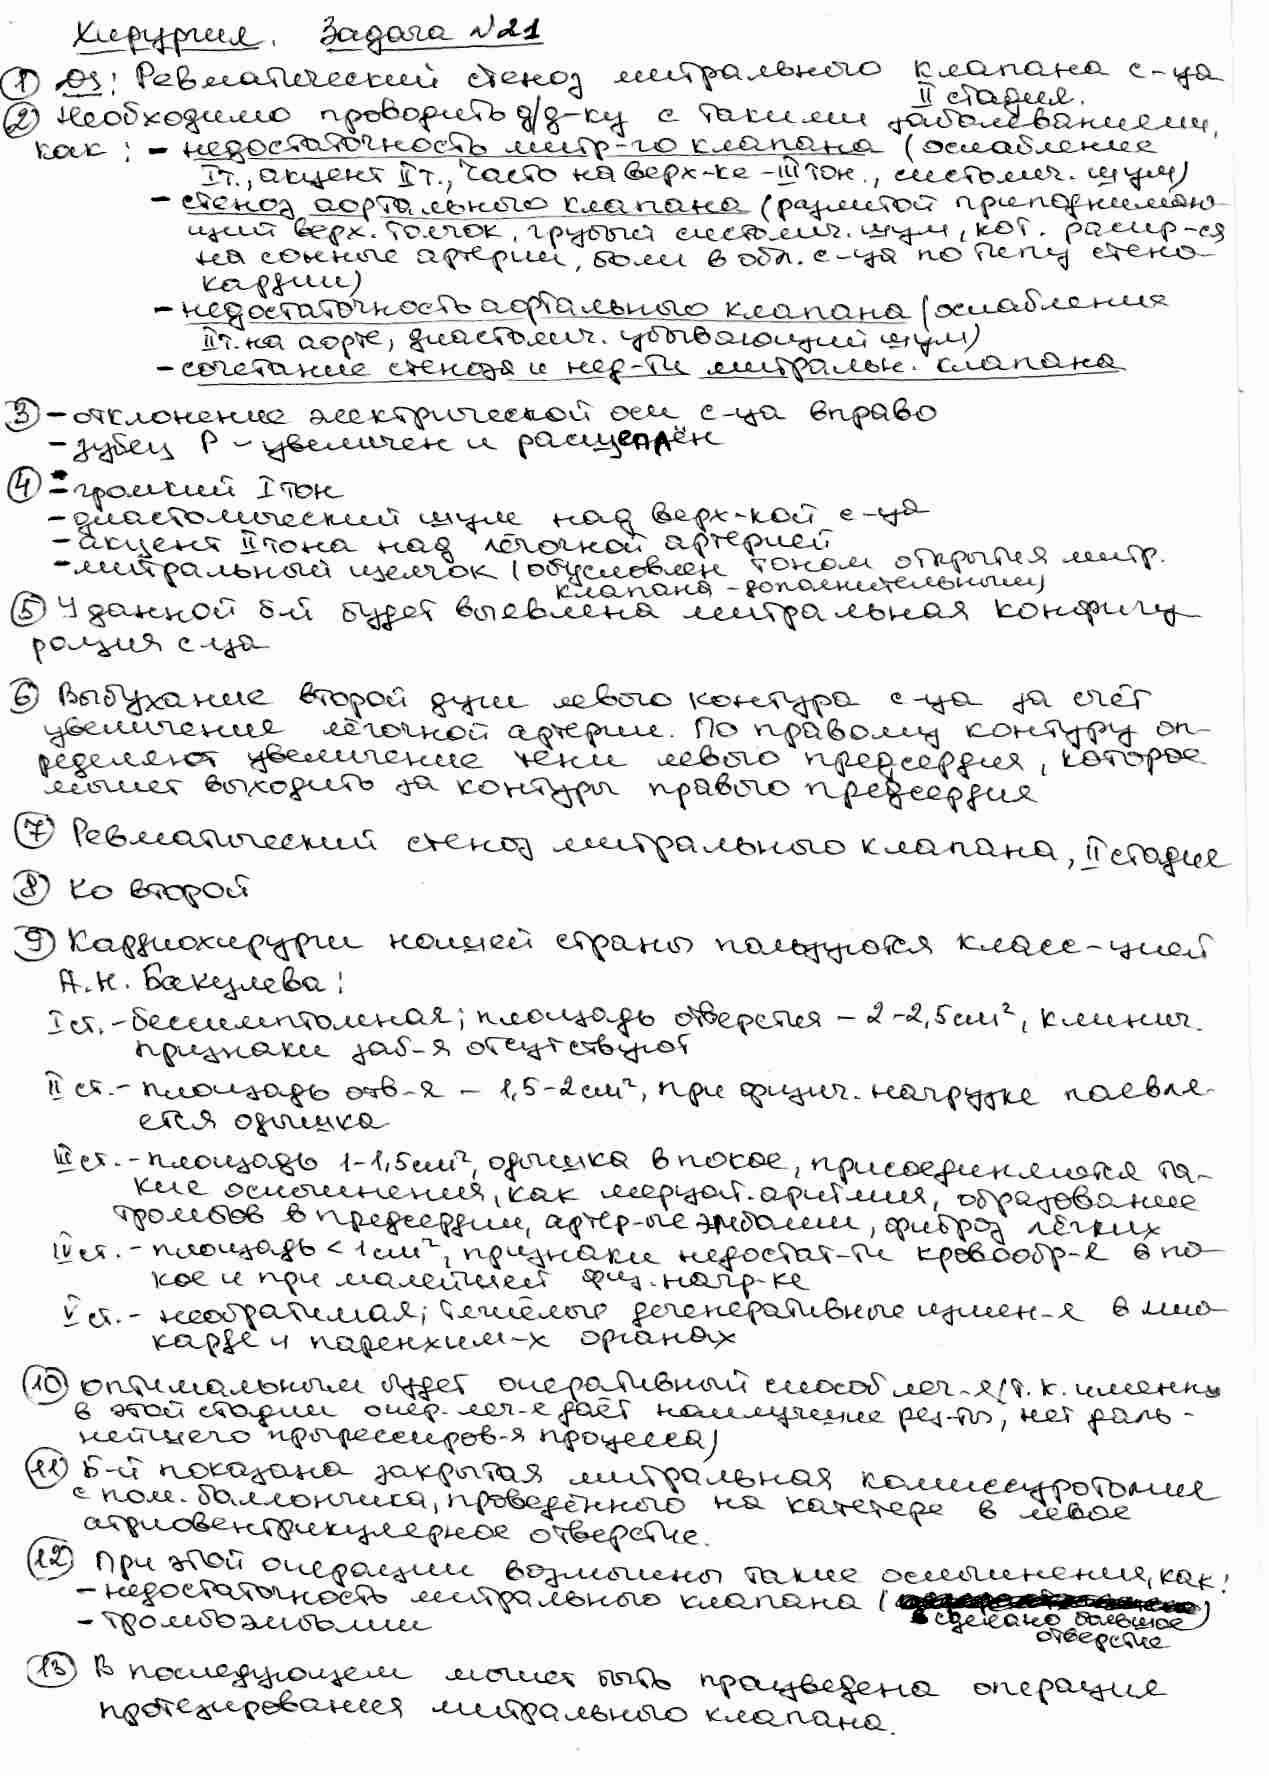 Хирургия. Задача №21
① Ds: Ревматический стеноз митрального клапана с-ца
II стадия.
② Необходимо проводить д/д-ку с такими заболеваниями,
как: - недостаточность митр-го клапана (ослабление
I т., акцент II т., часто на верх-ке - III тон., систолич. шум)
- стеноз аортального клапана (разлитой приподнимаю-
щий верх. толчок, грубый систолич. шум, кот. расшр-ся
на сонные артерии, боли в обл. с-ца по типу стено-
кардии)
- недостаточность аортального клапана (ослабления
II т. на аорте, диастолич. убывающий шум)
- сочетание стеноза и нед-ти митральн. клапана
③ - отклонение электрической оси с-ца вправо
- зубец Р - увеличен и расщеплён
④ - громкий I тон
- диастолический шум над верх-кой с-ца
- акцент II тона над лёгочной артерией
- митральный щелчок (обусловлен тоном открытия митр.
клапана - дополнительным)
⑤ У данной б-й будет выявлена митральная конфигу
рация с-ца
⑥ Выбухание второй дуги левого контура с-ца за счёт
увеличения лёгочной артерии. По правому контуру оп-
ределяют увеличение тени левого предсердия, которое
может выходить за контуры правого предсердия
⑦ Ревматический стеноз митрального клапана, II стадия
⑧ Ко второй
⑨ Кардиохирурги нашей страны пользуются класс-цией
А.Н. Бакулева:
I ст. - бессимптомная; площадь отверстия - 2-2,5см², клинич.
признаки заб-я отсутствуют
II ст. - площадь отв-я - 1,5-2см², при физич. нагрузке появля-
ется одышка
III ст. - площадь 1-1,5см², одышка в покое, присоединяются та-
кие осложнения, как мерцат. аритмия, образование
тромбов в предсердии, артер-ые эмболии, фиброз лёгких
IV ст. - площадь < 1см², признаки недостат-ти кровообр-я в по-
кое и при малейшей физ. нагр-ке
V ст. - необратимая; тяжёлые дегенеративные измен-я в мио-
карде и паренхим-х органах
⑩ Оптимальным будет оперативный способ леч-я (т.к. именно
в этой стадии опер. леч-е даёт наилучшие рез-ты, нет даль-
нейшего прогрессиров-я процесса)
⑪ Б-й показана закрытая митральная комиссуротомия
с пом. баллончика, проведённого на катетере в левое
атриовентрикулярное отверстие.
⑫ При этой операции возможны такие осложнения, как:
- недостаточность митрального клапана (
сделано большое
отверстие)
- тромбоэмболии
⑬ В последующем может быть произведена операция
протезирования митрального клапана.